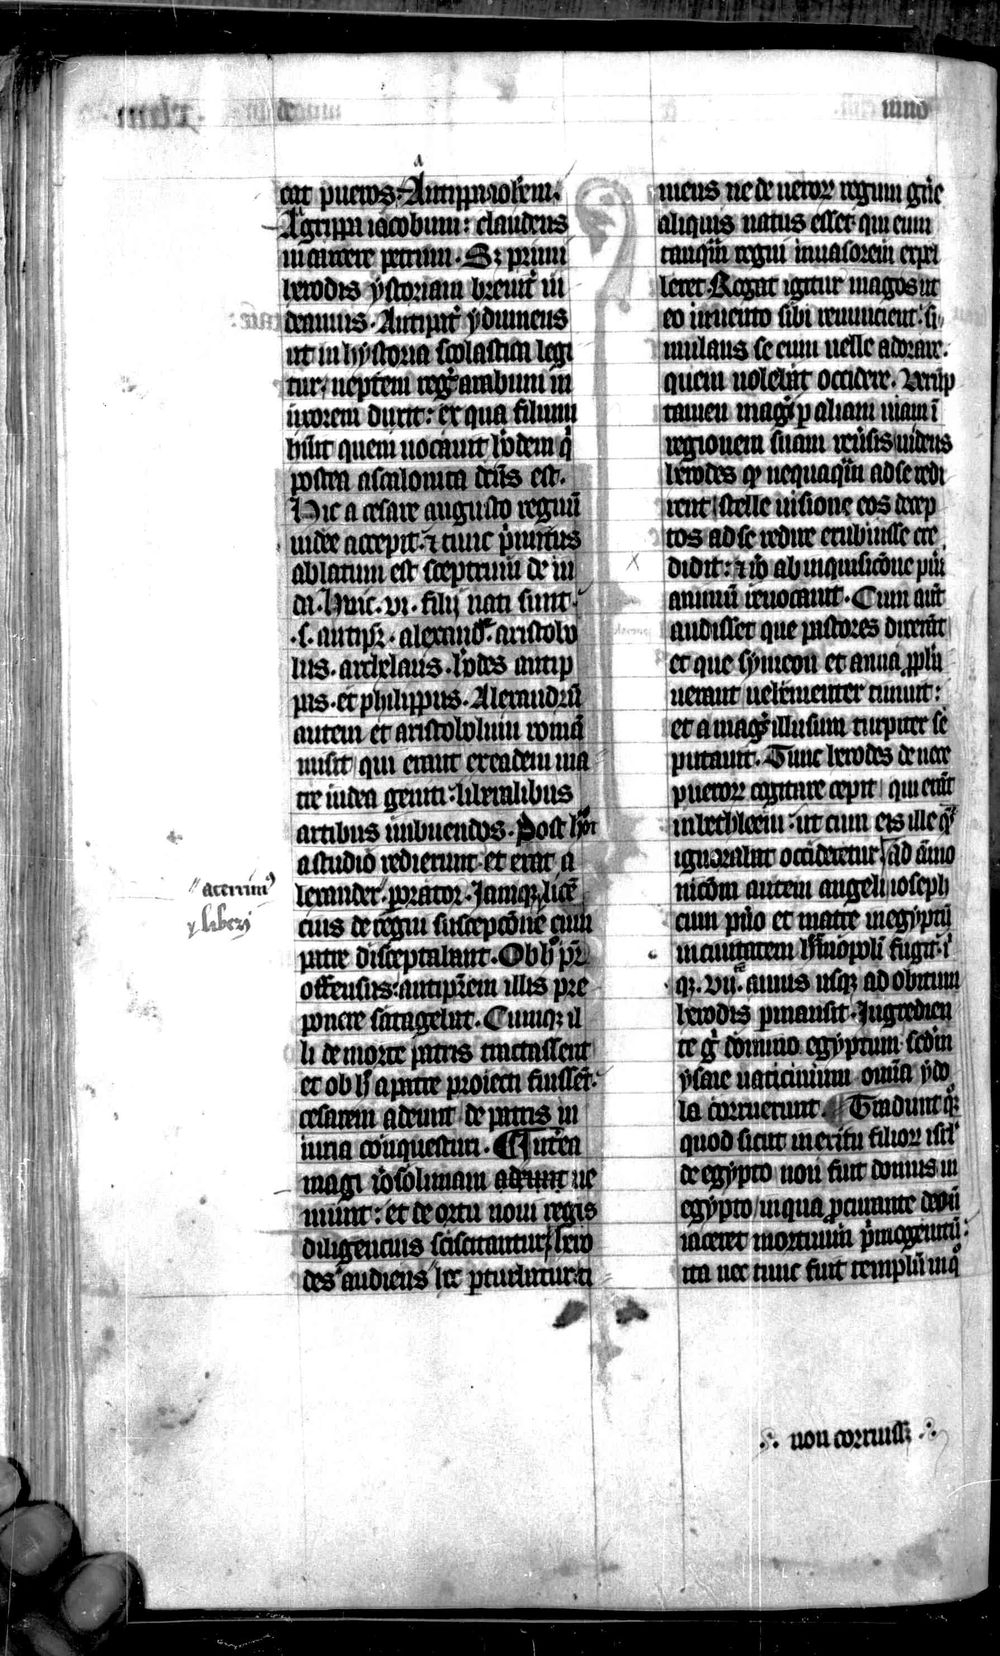 cat pueros. Antippa ioh̄em.
Agrippa iacobum: claudens
in carcere petrum. Sꝫ primū
herodis ystoriam breuit̾ ui
deamus. Antipat̾ ydumeus
ut in hystoria scolastica legi
tur, neptem reg̾ arabum in
uxorem duxit: ex qua filium
hūit quem uocauit h̾odem q̾
postea ascalonita dc̄us est.
Hic a cesare augusto regnū
iudee accepit. ⁊ tunc p̾mitus
ablatum est sceptrum de iu
da. Huic .vi. filij nati sunt.
.s. antipr̄. alexand̾. aristobo
lus. archelaus. h̾odes antip
pas. et philippus. Alexandrū
autem et aristobolum romā
misit qui erant ex eadem ma
tre iudea geniti: liberalibus
artibus imbuendos. Post h̾
a studio redierunt et erat a
lexander
orator. Iamqꝫ sicē
acerrim⁹
cius de regni susceptōne cum
patre disceptabant. Ob h̾ pr̄
offensus: antipr̄em illis pre
ponere satagebat. Cumqꝫ il
li de morte patris tractassent
et ob h̾ a patre proiecti fuissēt:
cesarem adeunt de patris in
iuria conquesturi. ¶ Int̾ea
magi ih̾osolimam adeunt ue
niunt: et de ortu noui regis
diligencius sciscitantur. hero
des audiens hec ꝑturbatur: ti
mens ne de ueroꝝ regum gn̄e
aliquis natus esset qui eum
tanquā regni inuasorem expel
leret. Rogat igitur magos ut
eo inuento sibi renuncient: si
mulans se eum uelle adorare.
quem uolebat occidere. Verūp
tamen magi ꝑ aliam uiam ī
regionem suam reu̾sis, uidens
herodes qꝫ nequaquā ad se redi
rent, stelle uisione eos decep
tos ad se redire erubuisse cre
didit: ⁊ iō ab inquisicōne pūi
animū reuocauit. Cum aūt
audisset que pastores dixerāt
et que symeon et anna ꝓph̾
uerant uehementer timuit:
et a magis illusum turpiter se
putauit. Tunc herodes de nece
pueroꝝ cogitare cepit qui erāt
in bethleem: ut cum eis ille q̾
ignorabat occideretur. Ad āmo
nicōm autem angeli ioseph
cum pūo et matre in egyptū
in ciuitatem h̾mopoli fugit: ī
qꝫ .vii. annis usqꝫ ad obitum
herodis ꝑmansit. Ingredien
te g̾ domino egyptum scdm̄
ysaie uaticinium omīa ydo
la corruerunt. ¶ Tradunt qꝫ
quod sicut in exitu filioꝝ isrl̾
de egypto non fuit domus in
egypto, in qua ꝓcurante deo nō
iaceret mortuum p̾mogenitū:
ita nec tunc fuit templū in q̾
∴ non corruissꝫ ∴